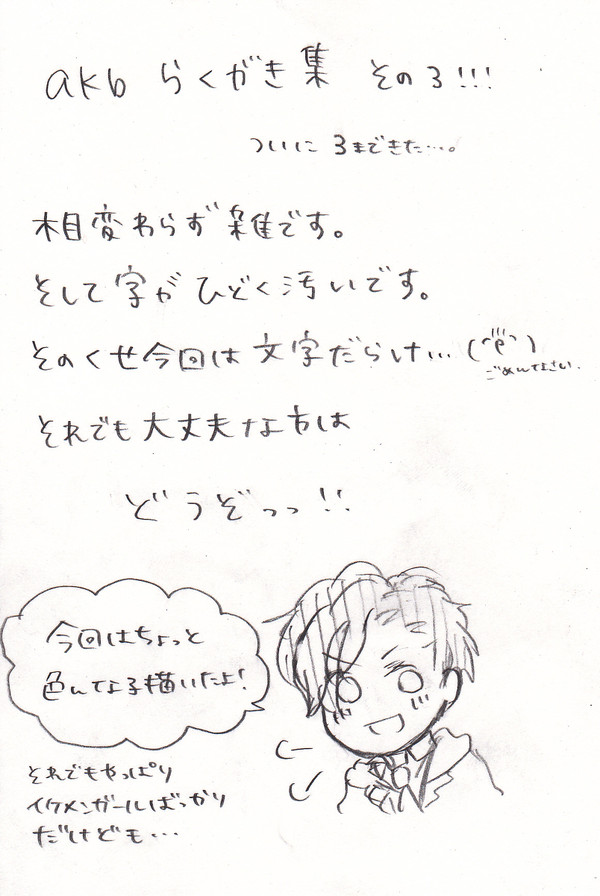 akb らくがき集 その3!!!
ついに 3まできた…。
相変わらず雑です。
そして字がひどく汚いです。
そのくせ今回は文字だらけ…
ごめんなさい.
それでも大丈夫な方は
どうぞっっ!!
今回はちょっと
色んな子描いたよ!
それでもやっぱり
イケメンガールばっかり
だけども…